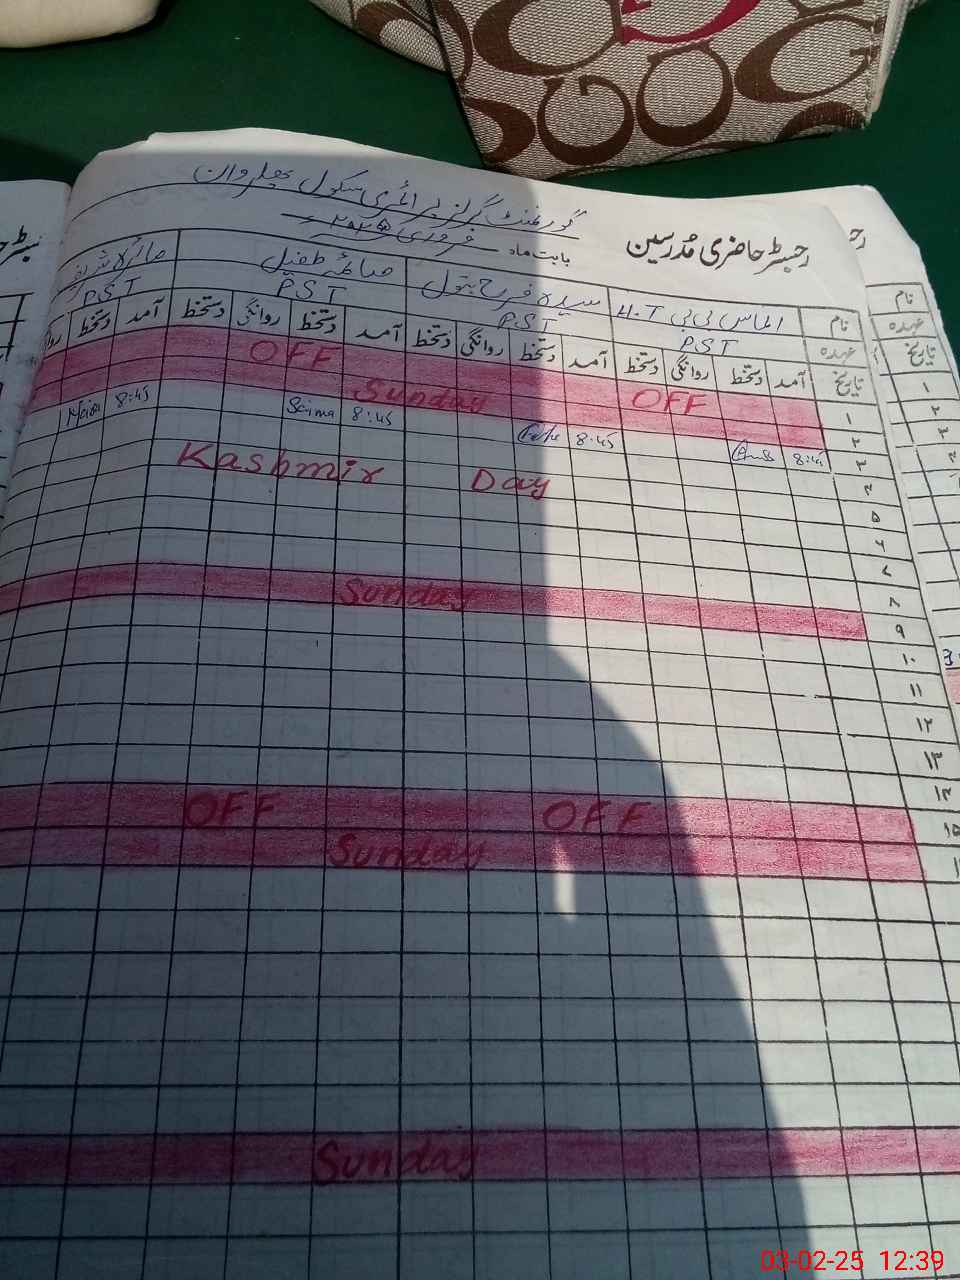 گورنمنٹ گرلز پرائمری سکول چھلروان
رجسٹر حاضری مُدرسین
بابت ماہ فروری ۲۰۲۵ء
نام الماس بی بی H.T سیدہ فرح بتول صائمہ طفیل مائرہ شریف
عہدہ PST PST PST PST
تاریخ آمد دستخط روانگی دستخط آمد دستخط روانگی دستخط آمد دستخط روانگی دستخط آمد دستخط
۱ OFF OFF
۲ Sunday
۳ 8:45 8:45 8:45 Saima 8:45
۴
۵ Kashmir Day
۶
۷
۸
۹ Sunday
۱۰
۱۱
۱۲
۱۳
۱۴
۱۵ OFF OFF
Sunday
Sunday
نام
عہدہ
تاریخ
۱
۲
۳
03-02-25 12:39